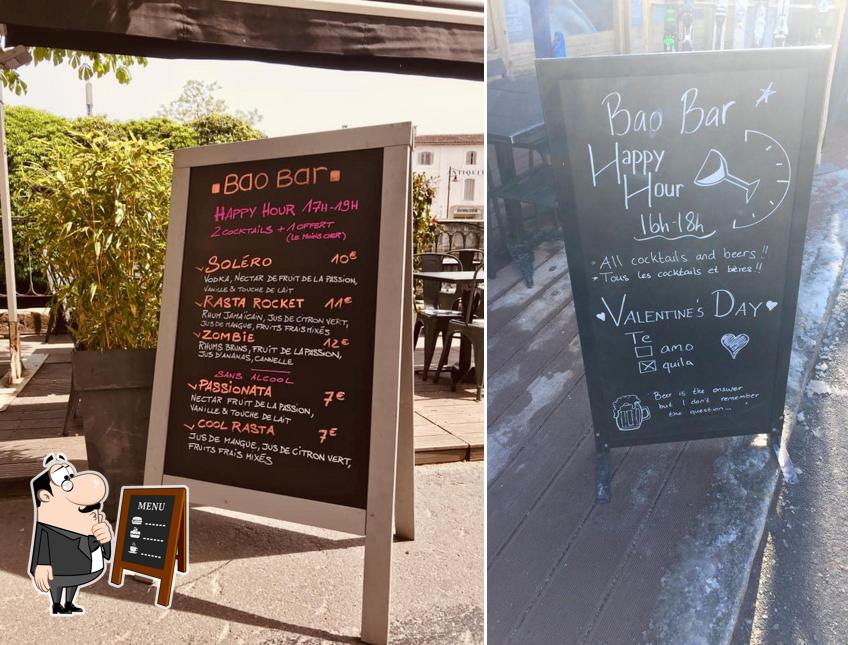 BAO BAR
HAPPY HOUR 17H-19H
2 COCKTAILS + 1 OFFERT
(LE MOINS CHER)
SOLÉRO 10€
VODKA, NECTAR DE FRUIT DE LA PASSION,
VANILLE & TOUCHE DE LAIT
RASTA ROCKET 11€
RHUM JAMAÏCAIN, JUS DE CITRON VERT,
JUS DE MANGUE, FRUITS FRAIS MIXÉS
ZOMBIE 12€
RHUMS BRUNS, FRUIT DE LA PASSION,
JUS D'ANANAS, CANNELLE
SANS ALCOOL
PASSIONATA 7€
NECTAR FRUIT DE LA PASSION,
VANILLE & TOUCHE DE LAIT
COOL RASTA 7€
JUS DE MANGUE, JUS DE CITRON VERT,
FRUITS FRAIS MIXÉS
MENU
Bao Bar
Happy
Hour
16h-18h
All cocktails and beers !!
Tous les cocktails et bières !!
VALENTINE'S DAY
Te
amo
quila
Beer is the answer
but I don't remember
the question...